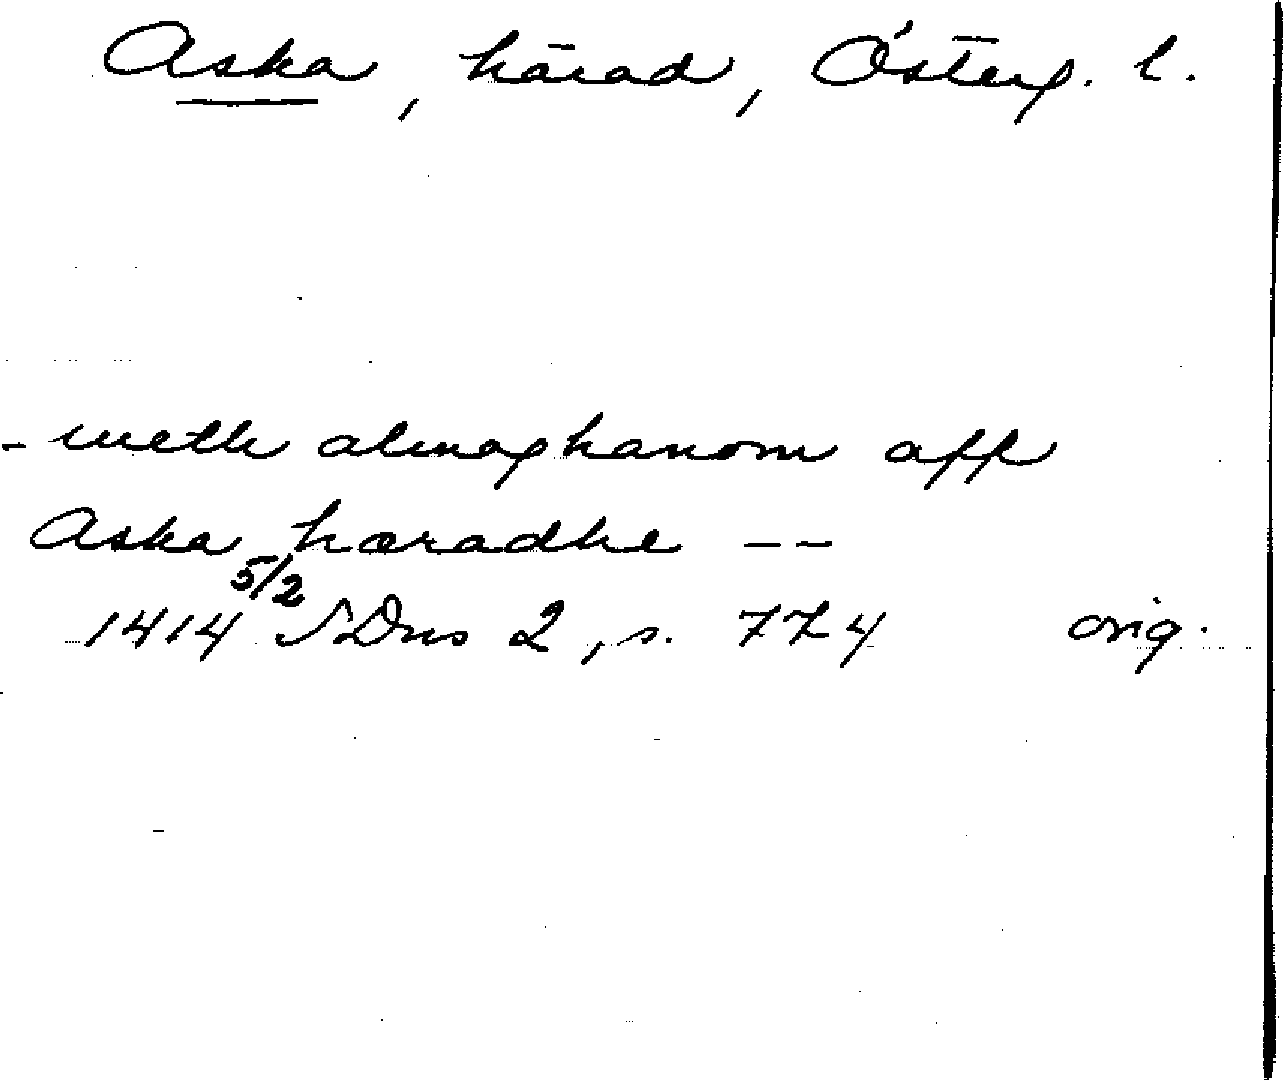 Aska, härad, Österg. l.
- meth almoghanom aff
Aska hæradhe --
1414 5/2 SDns 2, s. 774 orig.